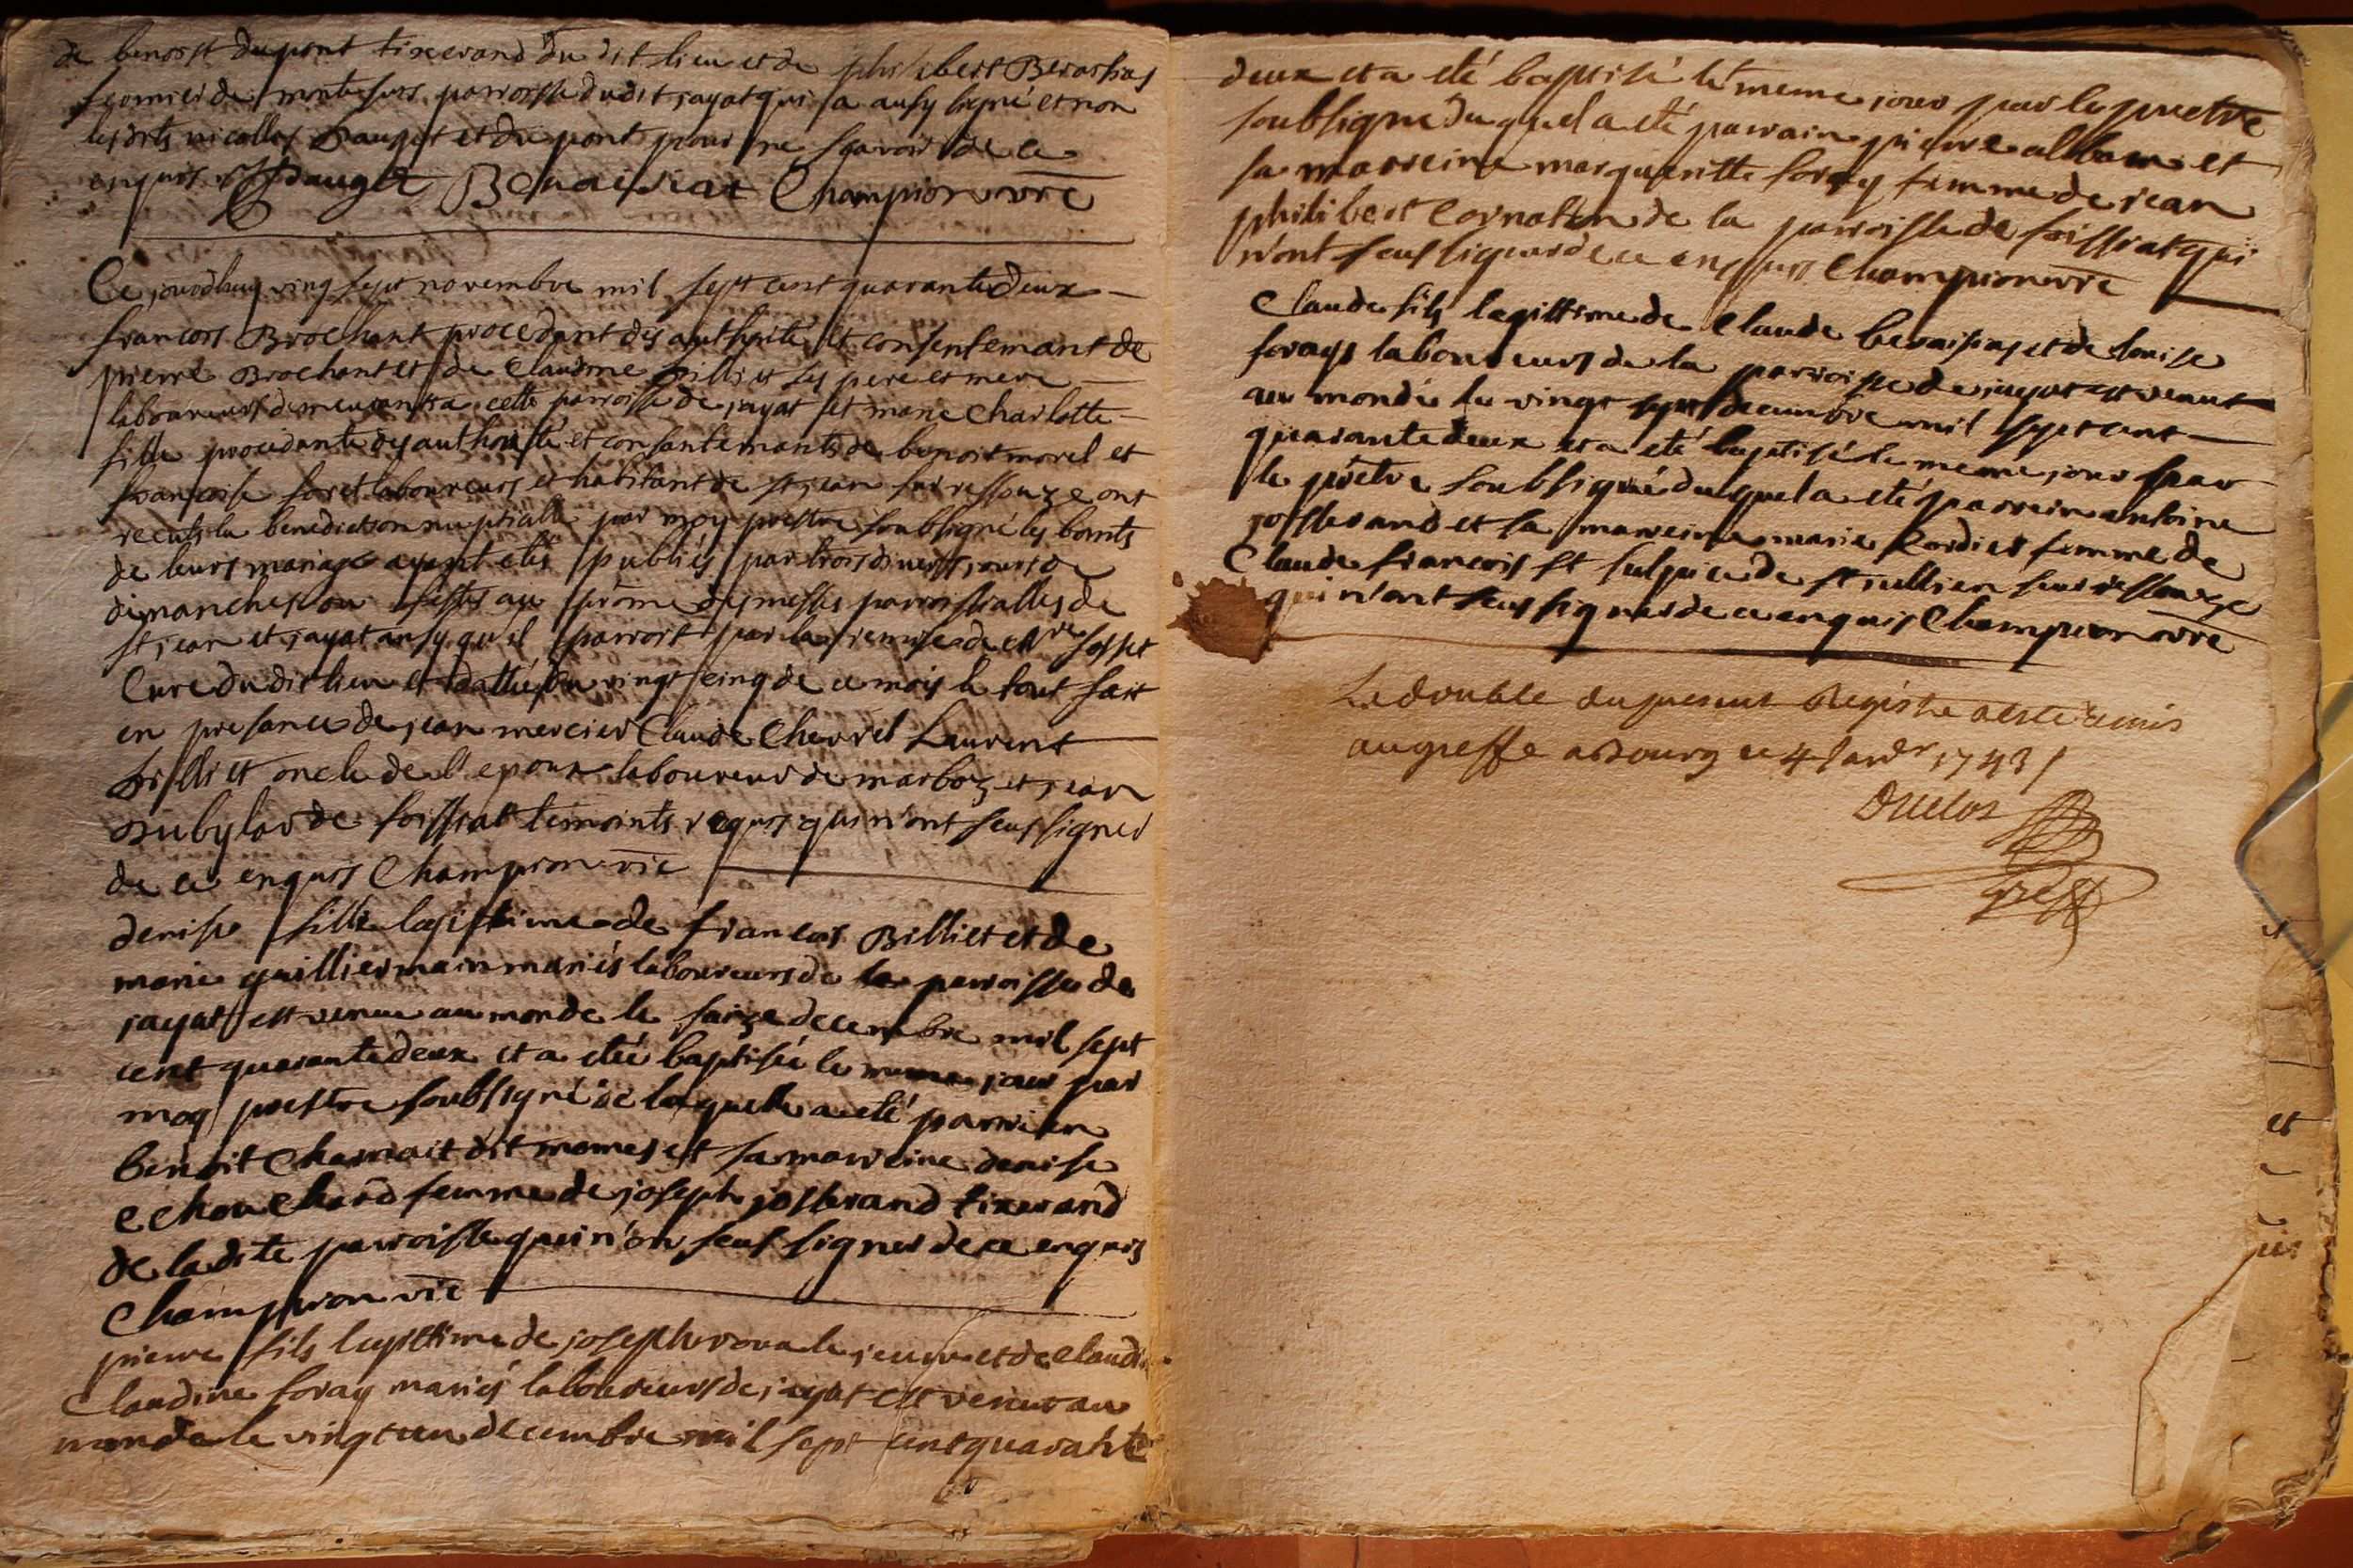 de benoist dupont tixerand du dit lieu et de philibert Beraisias
fermier de montesurs parroisse dudit jayat qui a ausy signé et non
lesdits nicollas Dauget et du pont pour ne scavoir de ce
enquis Dauget Beraisiat Champion vre
Ce jourdhuy ving sept novembre mil sept cent quarante deux
francois Brochant procedant des authorité et consentemant de
pierre Brochant et de Claudine Billiet ses pere et mere
laboureurs demeurants a cette parroisse de jayat et marie Charlotte
fille procedante des authorité et consantemants de benoit morel et
francoise foret laboureurs et habitant de st jean sur ressouze ont
receuts la benediction nuptialle par moy prestre soubsigné les bants
de leurs mariage ayant etés publiés par trois divers jours de
dimanches ou festes au prome des messes parroissialles de
st jean et jayat ausy qu'il parroit par la remise de Mre
Curé du dit lieu et dattée du vingt cinq de ce mois le tout fait
en presance de jean mercier Claude Chevrel Laurent
Billiet oncle de l'epoux laboureur de marboz et jean
Dubylar de foissiat temoints requis qui n'ont seus signer
de ce enquis Champion vre
denise fille legistime de francois Billiet et de
marie guilliermain mariés laboureurs de la parroisse de
jayat est venue au monde le saize decembre mil sept
cent quarante deux et a eteé baptisée le meme jour par
moy prestre soubsigné de laquelle a eté parrien
benoit Chamait dit momes et sa marreine denise
echouchard femme de joseph josserand tixerand
de ladite parroisse qui n'on seus signer de ce enquis
Champion vre
pierre fils legittime de joseph vova le jeune et de Claudi
Claudine foray mariés laboureurs de jayat est venut au
monde le vingt un decembre mil sept cent quarante
deux et a eté baptisé le meme jour par le prettre
soubsigné duquel a eté parrain pierre alban et
sa marreine margueritte foray femme de jean
philibert Cornaton de la parroisse de foissiat qui
n'ont seus signer de ce enquis Champion vre
Claude fils legittime de Claude beraisias et de louise
forays laboureurs de la parroisse de jayat est venut
au monde le vingt sept decembre mil sept cent
quarante deux et a eté baptisé le meme jour par
le prêtre soubsigné duquel a eté parrein antoine
josserand et sa marreine marie Cordier femme de
Claude francois st sulpice de st jullien sur ressouze
qui n'ont seus signer de ce enquis Champion vre
Le double du present Registre a esté remis
au greffe a Bourg ce 4 Janvr 1743
Duclos
greff
et
et